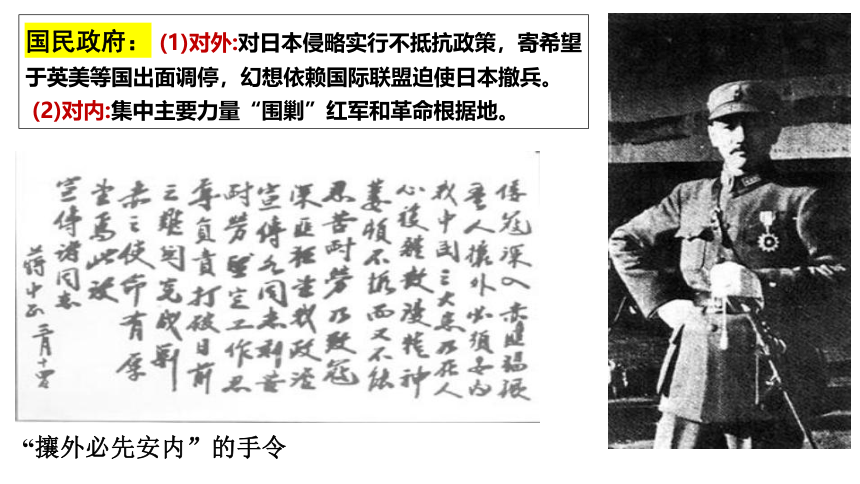 国民政府：(1)对外:对日本侵略实行不抵抗政策，寄希望
于英美等国出面调停，幻想依赖国际联盟迫使日本撤兵。
(2)对内:集中主要力量“围剿”红军和革命根据地。
倭寇深入赤匪猖
吾人攘外必須安内
我中国之大患乃在人
心複雜散漫精神
萎頓不振而又不能
忍苦耐勞乃致寇
深匪猖望我政治
宣傳各同志刻苦
耐勞堅定工作忍
辱負責打破目前
之難関完成剿
赤之使命有厚
望焉此致
宣傳諸同志
蒋中正 三月十
“攘外必先安内”的手令